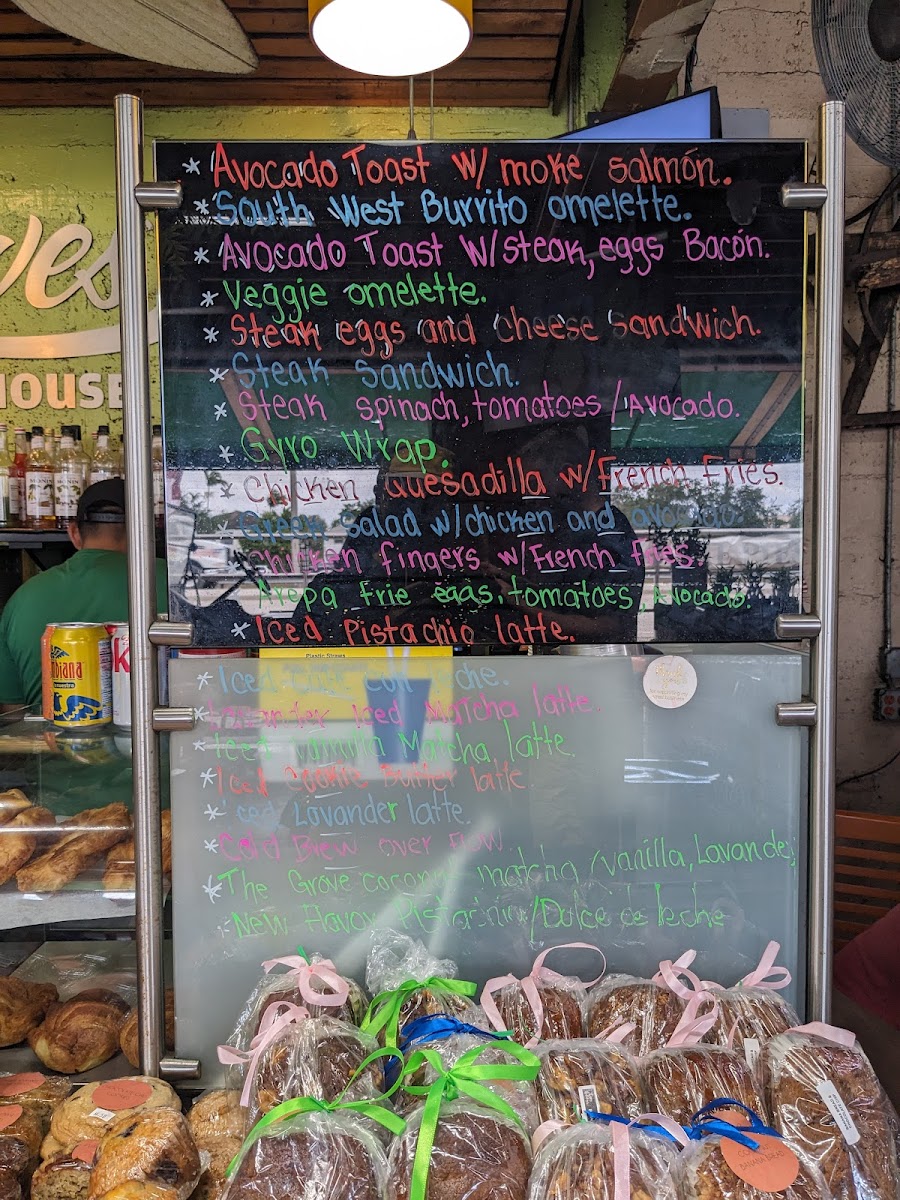 * Avocado Toast W/ moke salmón.
* South West Burrito omelette.
* Avocado Toast W/steak, eggs Bacón.
* Veggie omelette.
* Steak eggs and cheese sandwich.
* Steak Sandwich.
* Steak spinach, tomatoes / Avocado.
* Gyro Wrap.
* Chicken Quesadilla w/French Fries.
* Greek Salad w/chicken and avocado.
* Chicken fingers w/French fries.
* Arepa Frie eggs, tomatoes, Avocado.
* Iced Pistachio latte.
Plastic Straws
* Iced leche.
* Lavander Iced Matcha latte.
* Iced Vanilla Matcha latte.
* Iced Cookie Butter latte
* Iced Lavander latte.
* Cold Brew over Flow
* The Grove coconut matcha /vanilla, Lavander,
* New Flavor Pistachio/Dulce de leche
ves
HOUSE
MONIN
MONIN
mbiana